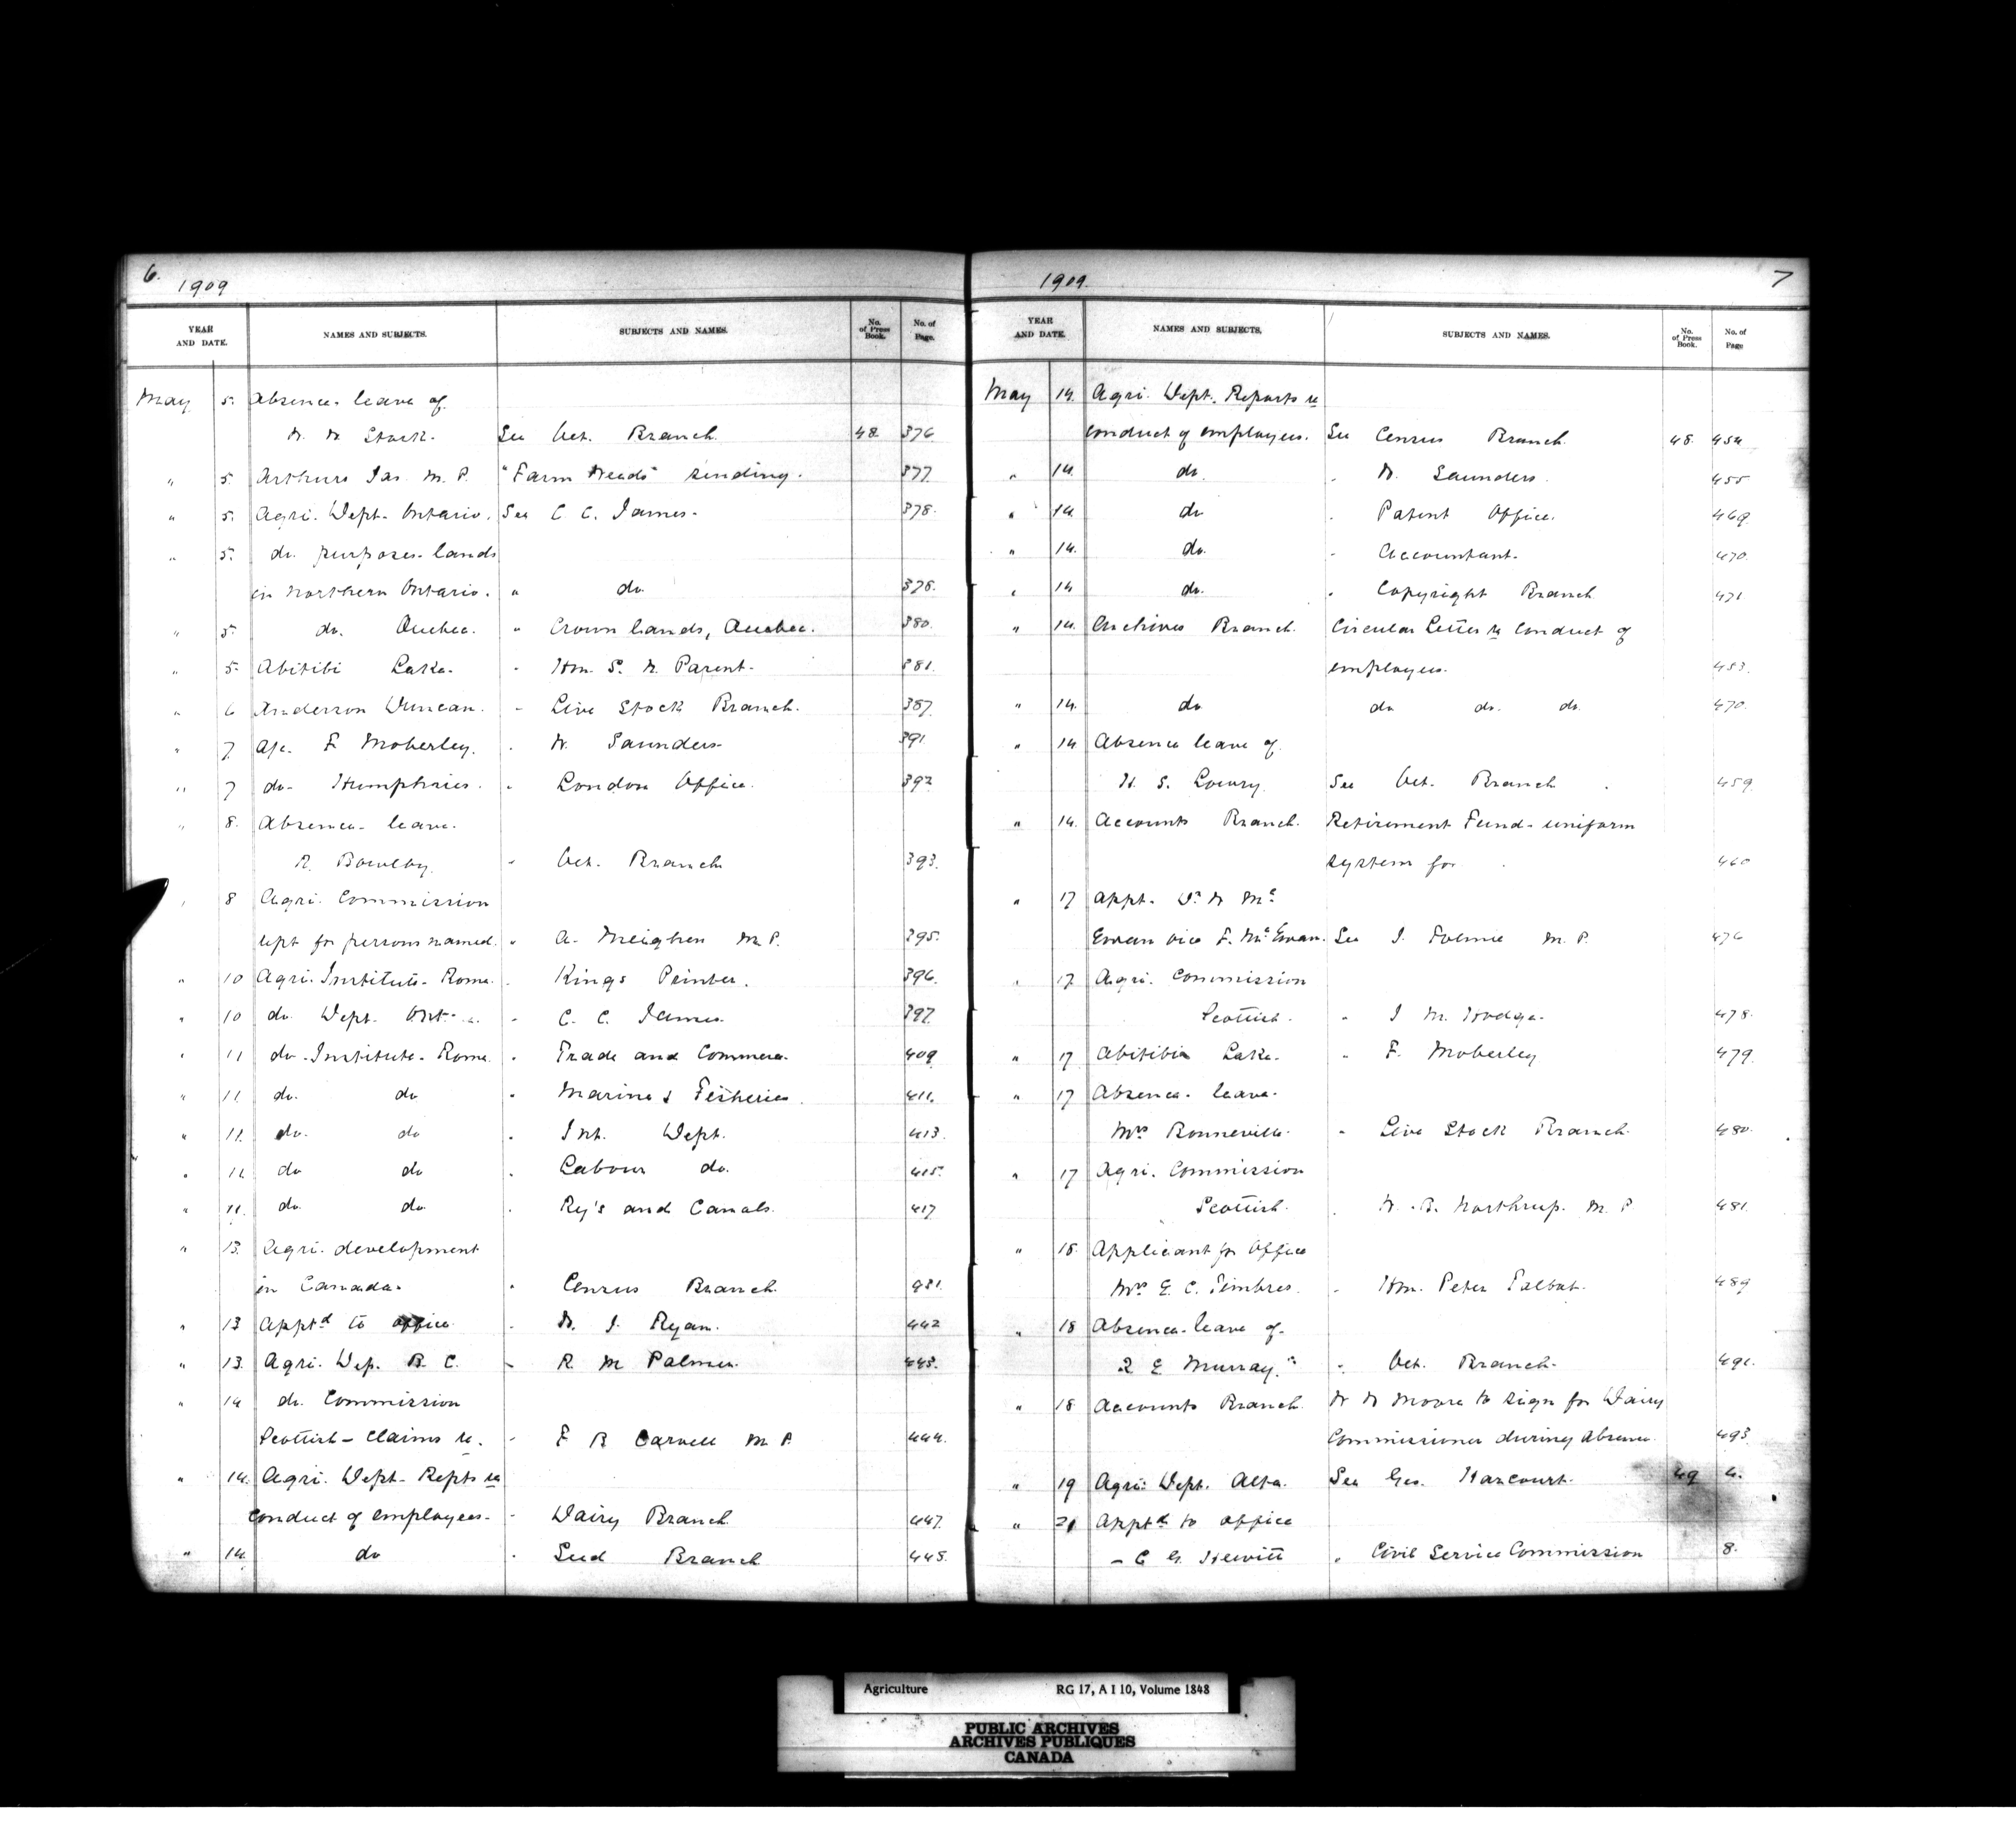 6.
1909
YEAR AND DATE. NAMES AND SUBJECTS. SUBJECTS AND NAMES. No. of Press Book. No. of Page.
May 5. Absence. leave of
W. W. Stock. See Vet. Branch. 48 376
" 5. Arthurs Jas. M. P. "Farm Weeds" sending. 377
" 5. Agri. Dept. Ontario. See C C. James. 378.
" 5. do. purposes. lands
in Northern Ontario. " do. 378.
" 5. do. Quebec. " Crown Lands, Quebec. 380.
" 5. Abitibi Lake. " Hon. S. N. Parent. 381.
" 6 Anderson Duncan. " Live Stock Branch. 387.
" 7. F Moberley. " W. Saunders 391
" 7 do. Humphries. " London Office. 392
" 8. Absence. leave.
R. Bowlby. " Vet. Branch 393.
" 8 Agri. Commission
for persons named. " A. Meighen M. P. 395.
" 10 Agri. Institute. Rome. " Kings Printer. 396.
" 10 do. Dept. Ont. " C. C. James. 397.
" 11 do. Institute. Rome. " Trade and Commerce. 409
" 11. do. do " Marine & Fisheries. 411.
" 11. do. do " Int. Dept. 413.
" 11. do do " Labour do. 415.
" 11. do. do. " Ry's and Canals. 417
" 13. Agri. development
in Canada. " Census Branch. 431.
" 13 Apptd to office. " W. J. Ryan. 442
" 13. Agri. Dep. B. C. " R. M Palmer. 443.
" 14 do. Commission
Scottish - Claims re. " F B Carvell M P. 444.
" 14. Agri. Dept. Repts re
conduct of employees. " Dairy Branch. 447.
" 14. do " Seed Branch 448.
1909.
7
YEAR AND DATE. NAMES AND SUBJECTS. SUBJECTS AND NAMES. No. of Press Book. No. of Page
May 14. Agri. Dept. Reports re
conduct of employees. See Census Branch. 48. 454
" 14. do. " W. Saunders. 455
" 14. do " Patent Office. 469
" 14. do. " Accountant. 470.
" 14 do. " Copyright Branch 471
" 14. Archives Branch. Circular Letter re conduct of
employees. 453.
" 14. do do do. do. 470.
" 14 Absence leave of
H. S. Lowry. See Vet. Branch 459
" 14. Accounts Branch. Retirement Fund - uniform
system for 460
" 17 Appt. Dr W Mc
Ewan vice F. McEwan. See J. Tolmie M. P. 476
" 17. Agri. Commission
Scottish. " J M. Hodge. 478.
" 17 Abitibi Lake. " F. Moberley 479.
" 17 Absence. leave.
Mrs Bonneville. " Live Stock Branch. 480.
" 17 Agri. Commission
Scottish. " W. B. Northrup. M. P 481.
" 18. Applicant for Office
Mrs E. C. Timbres. " Hon. Peter Talbot. 489
" 18 Absence. leave of.
E Murray. " Vet. Branch. 491.
" 18. Accounts Branch. W W Moore to sign for Dairy
Commissioner during Absence. 493.
" 19 Agri. Dept. Alta. See Geo. Harcourt. 49 4.
" 21 Apptd to office
- C G. Hewitt " Civil Service Commission 8.
Agriculture RG 17, A I 10, Volume 1848
PUBLIC ARCHIVES
ARCHIVES PUBLIQUES
CANADA